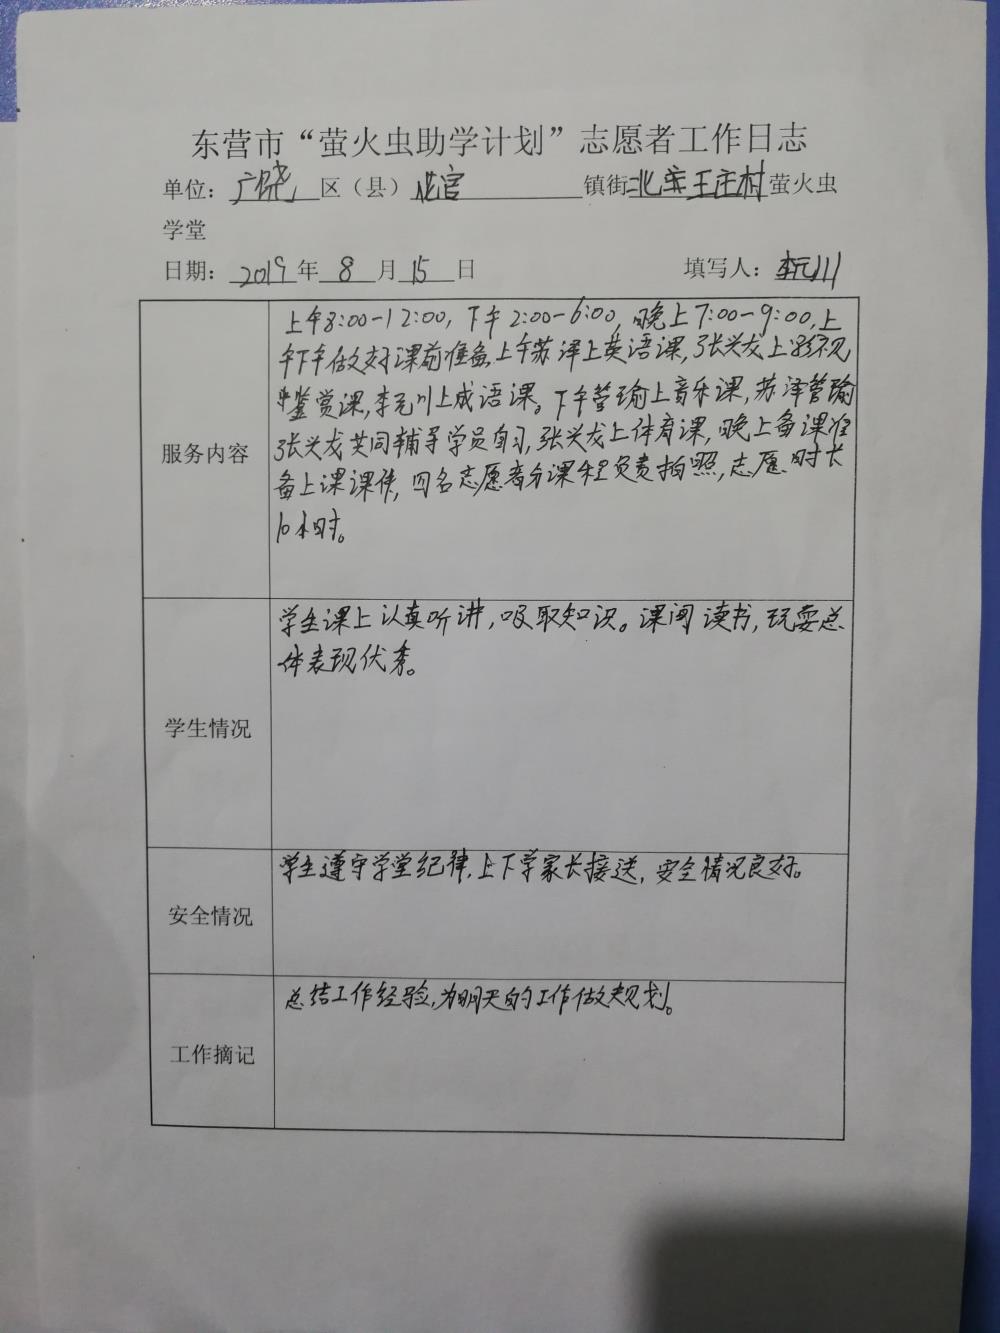 东营市“萤火虫助学计划”志愿者工作日志
单位：广饶 区（县） 花官 镇街 北宋王庄村 萤火虫
学堂
日期：2019年 8 月 15 日 填写人：李元川
服务内容
上午8:00-12:00，下午2:00-6:00，晚上7:00-9:00，上
午下午做好课前准备，上午苏泽上英语课，张兴龙上影视
鉴赏课，李元川上成语课。下午管瑜上音乐课，苏泽管瑜
张兴龙共同辅导学员自习，张兴龙上体育课，晚上备课准
备上课课件，四名志愿者分课程负责拍照，志愿时长
10小时。
学生情况
学生课上认真听讲，吸取知识。课间读书，玩耍总
体表现优秀。
安全情况
学生遵守学堂纪律，上下学家长接送，安全情况良好。
工作摘记
总结工作经验，为明天的工作做规划。